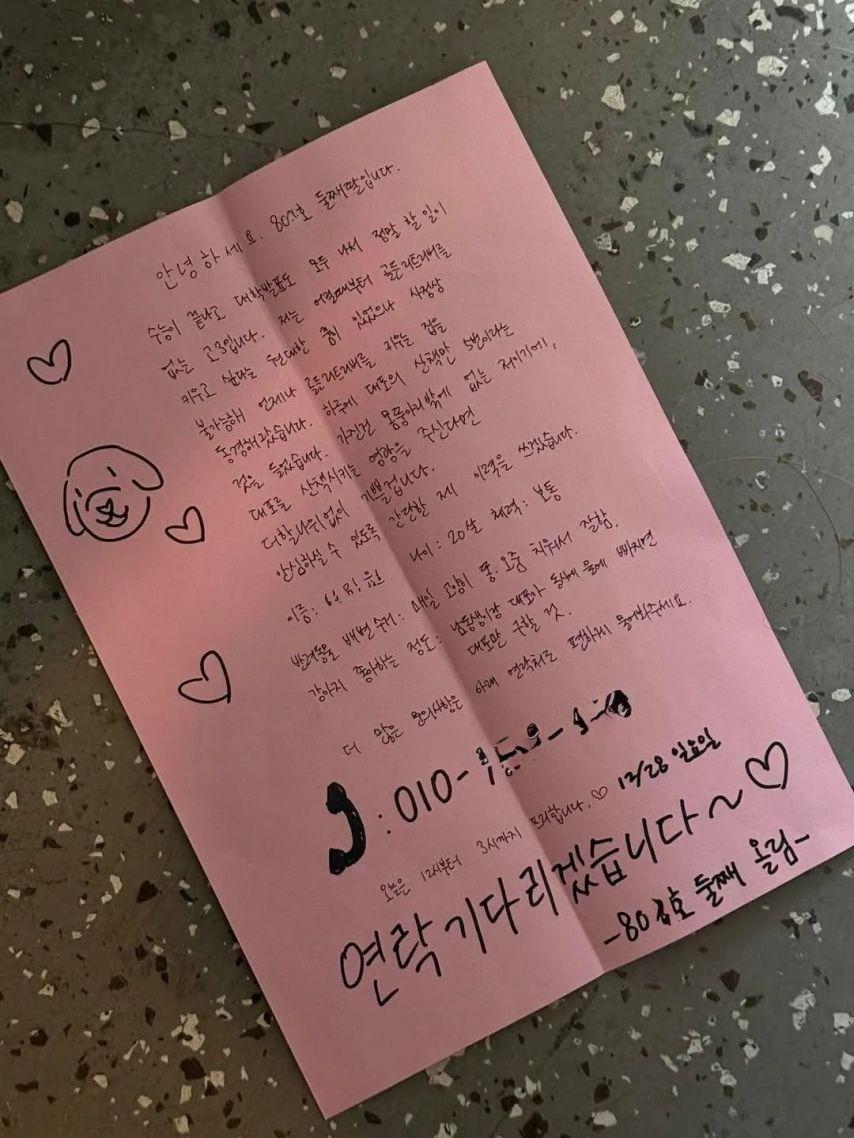 안녕하세요. 80호 둘째딸입니다.
수능이 끝나고 대학발표도 모두 나서 정말 할 일이
없는 고3입니다. 저는 어릴때부터 골든리트리버를
키우고 싶다는 원대한 꿈이 있었으나 사정상
불가능해 언제나 골든리트리버를 키우는 집을
동경해왔습니다. 하루에 대포의 산책만 5번이라는
것을 들었습니다. 가진건 몸뚱아리밖에 없는 저이기에,
대포를 산책시키는 영광을 주신다면
더할나위없이 기쁠겁니다.
안심하실 수 있도록 간단한 제 이력을 쓰겠습니다.
이름: 나이: 20살 체력: 보통
반려동물 배변 수거: 매일 고양이 똥.오줌 치워서 잘함.
강아지 좋아하는 정도: 남동생이랑 대포가 동시에 물에 빠지면
대포만 구할 것.
더 많은 문의사항은 아래 연락처로 편하게 물어봐주세요.
: 010-
오늘은 12시부터 3시까지 프리합니다. ♡ 12/28 일요일
연락 기다리겠습니다~♡
-80호 둘째 올림-